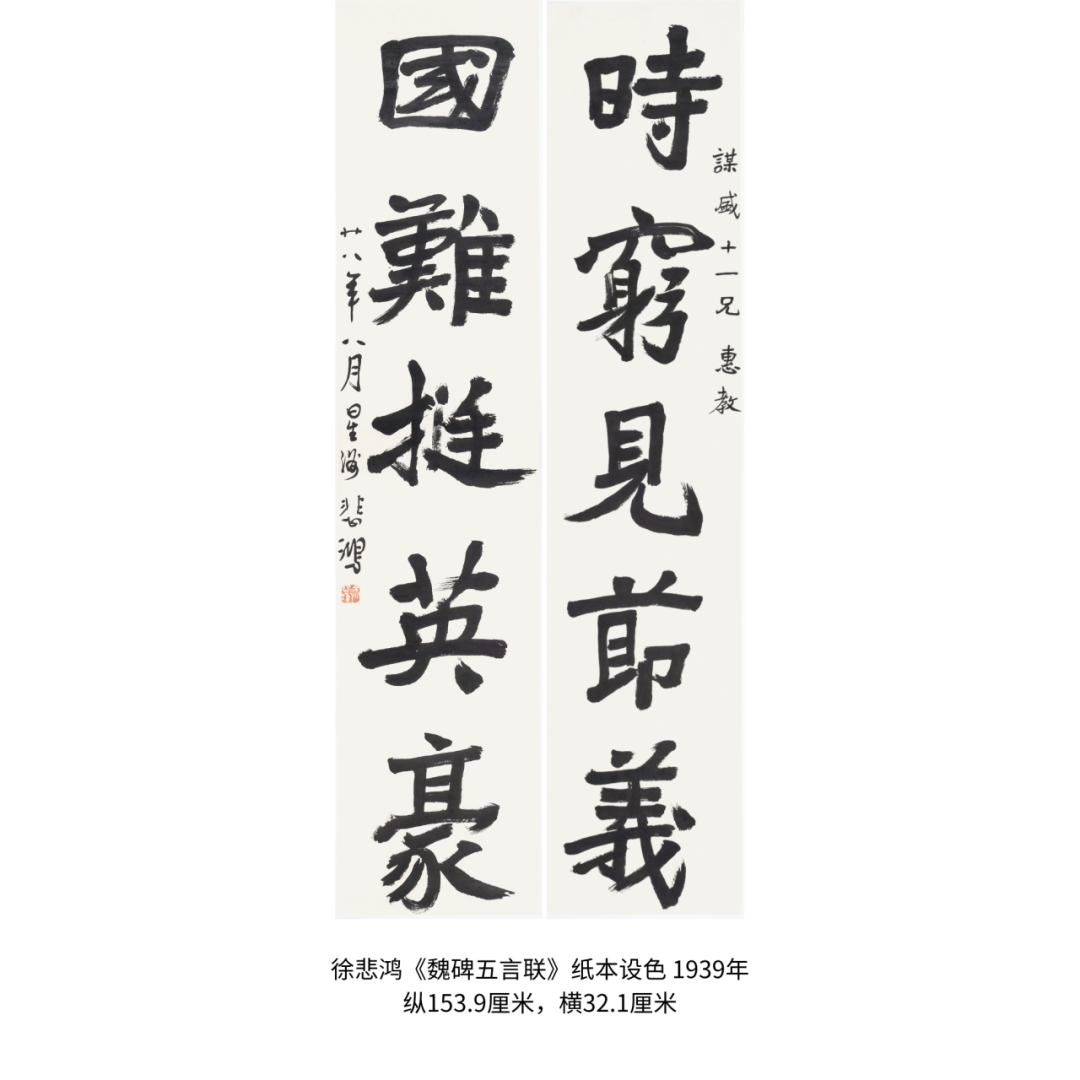 時窮見節義
謀威十一兄 惠教
國難挺英豪
廿八年八月星洲 悲鴻
徐悲鸿《魏碑五言联》纸本设色 1939年
纵153.9厘米，横32.1厘米